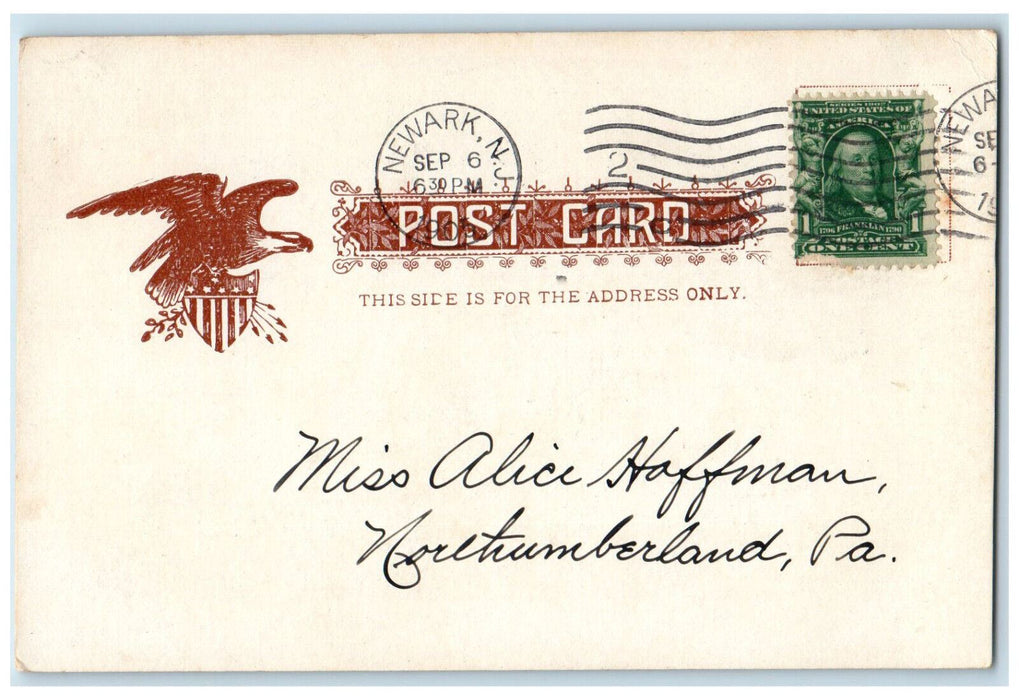 NEWARK, N.J.
SEP 6
630 P.M.
2
POST CARD
THIS SIDE IS FOR THE ADDRESS ONLY.
SERIES 1902
UNITED STATES OF
AMERICA
1706 FRANKLIN 1790
1 POSTAGE
ONE CENT
NEWA
SE
6-
Miss Alice Hoffman,
Northumberland, Pa.